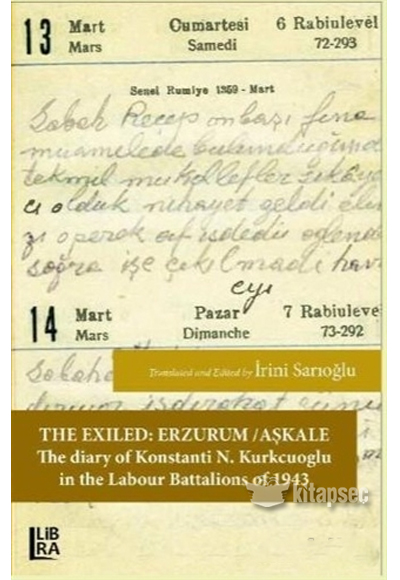 13 Mart Cumartesi 6 Rabiulevel
Mars Samedi 72-293
Senei Rumiye 1359 - Mart
Sabah Recep onbaşı fena
muamelede bulunduğundan
tekmil mükellefler şikâye
cı olduk nihayet geldi
operek af istedi
sogra işe çıkılmadi hava
eyi
14 Mart Pazar 7 Rabiulevel
Mars Dimanche 73-292
Translated and Edited by İrini Sarıoğlu
THE EXILED: ERZURUM /AŞKALE
The diary of Konstanti N. Kurkcuoglu
in the Labour Battalions of 1943
kitapseç
LiB
RA